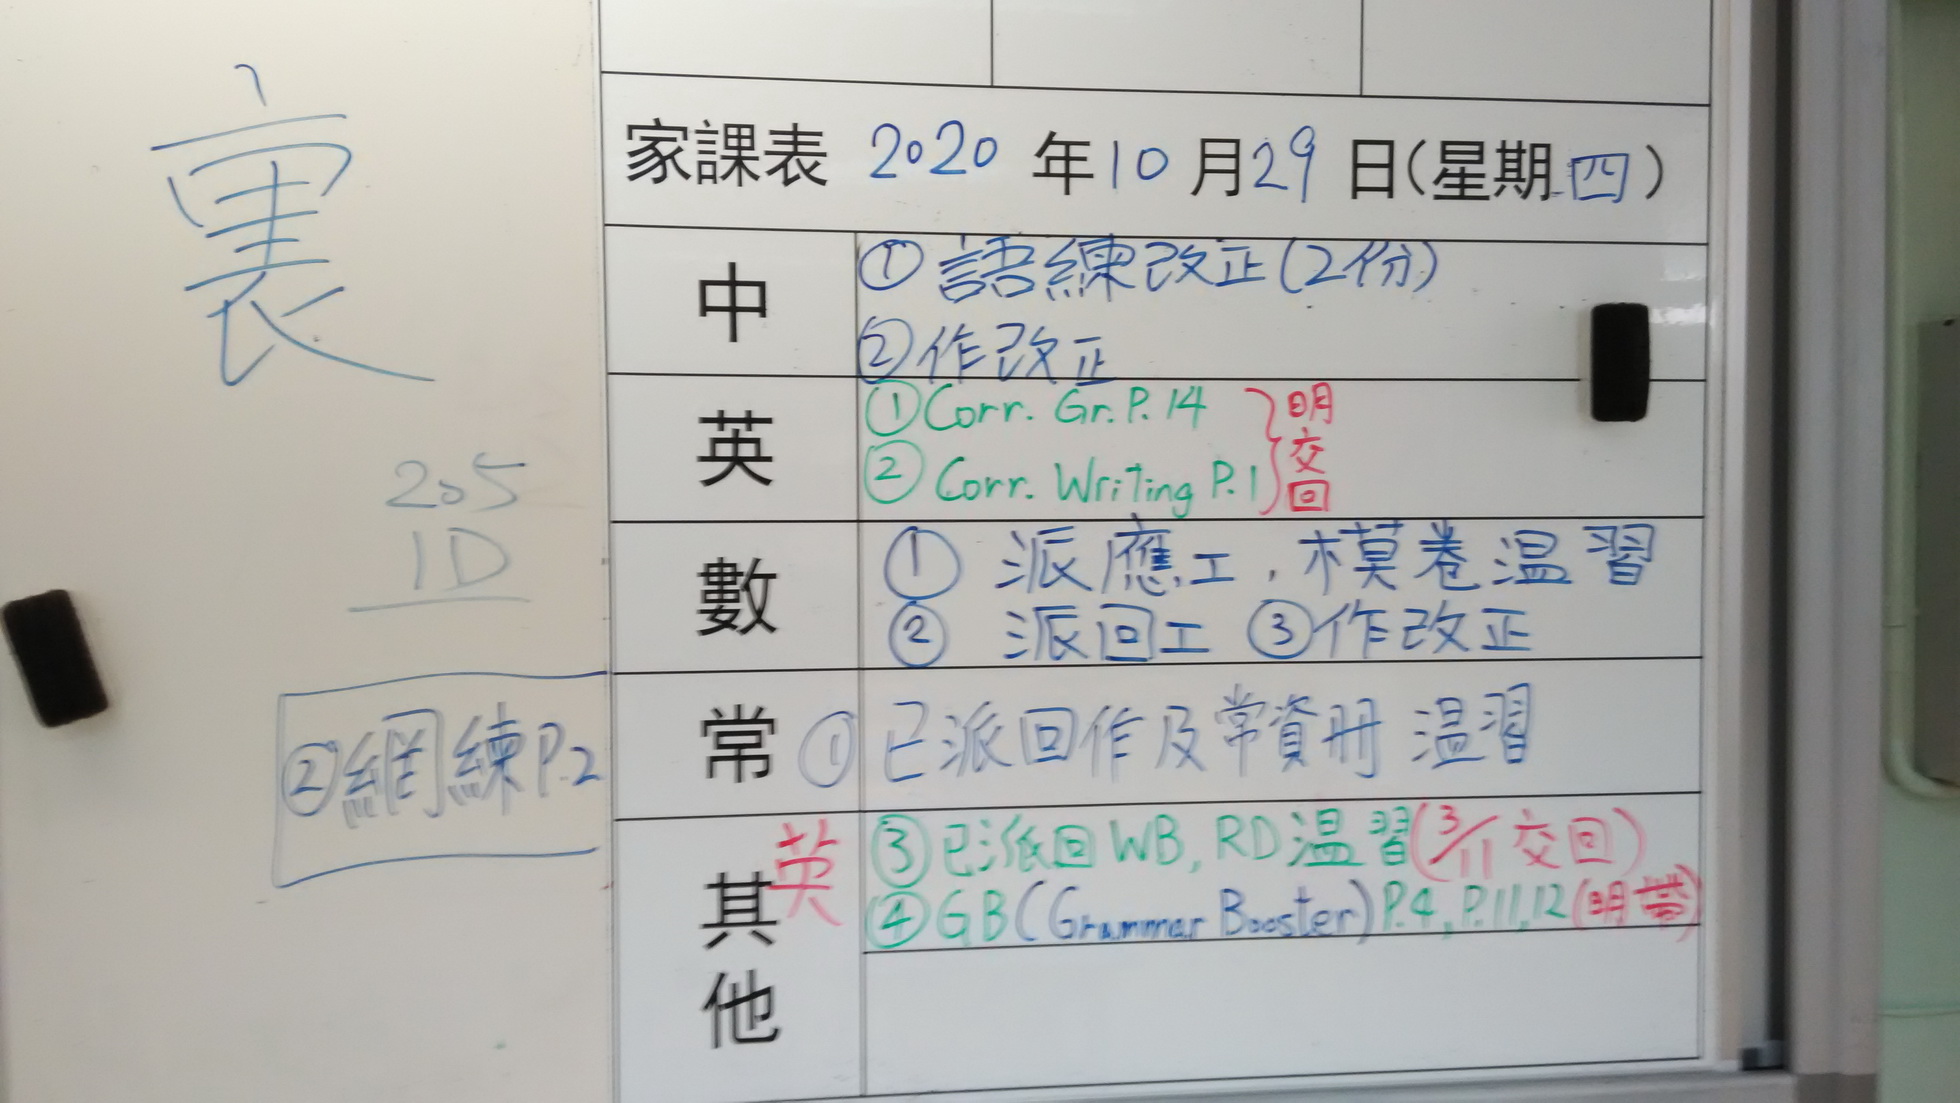 裏
205
1D
②網練P.2
家課表 2020 年10月29日(星期四)
中
①語練改正(2份)
②作改正
英
①Corr. Gr. P.14
②Corr. Writing P.1
明交回
數
① 派應工,模卷温習
② 派回工 ③作改正
常
① 已派回作及常資冊 温習
其他
英
③已派回WB, RD温習(3/11交回)
④GB(Grammar Booster)P.4, P.11,12(明帶)